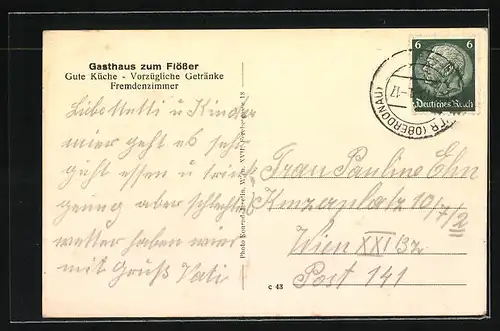 Gasthaus zum Flößer
Gute Küche - Vorzügliche Getränke
Fremdenzimmer
Liebe Netti u Kinder
mier geht es sehr
guht essen u trink
genug aber schlechtes
wetter haben wier
mit Gruß Vati
Photo Wien, XVIII.
c 43
6 6
Deutsches Reich
(OBERDONAU)
-17
Frau Pauline Ehn
Kinzerplatz 10/7/2
Wien XXI 132
Post 141